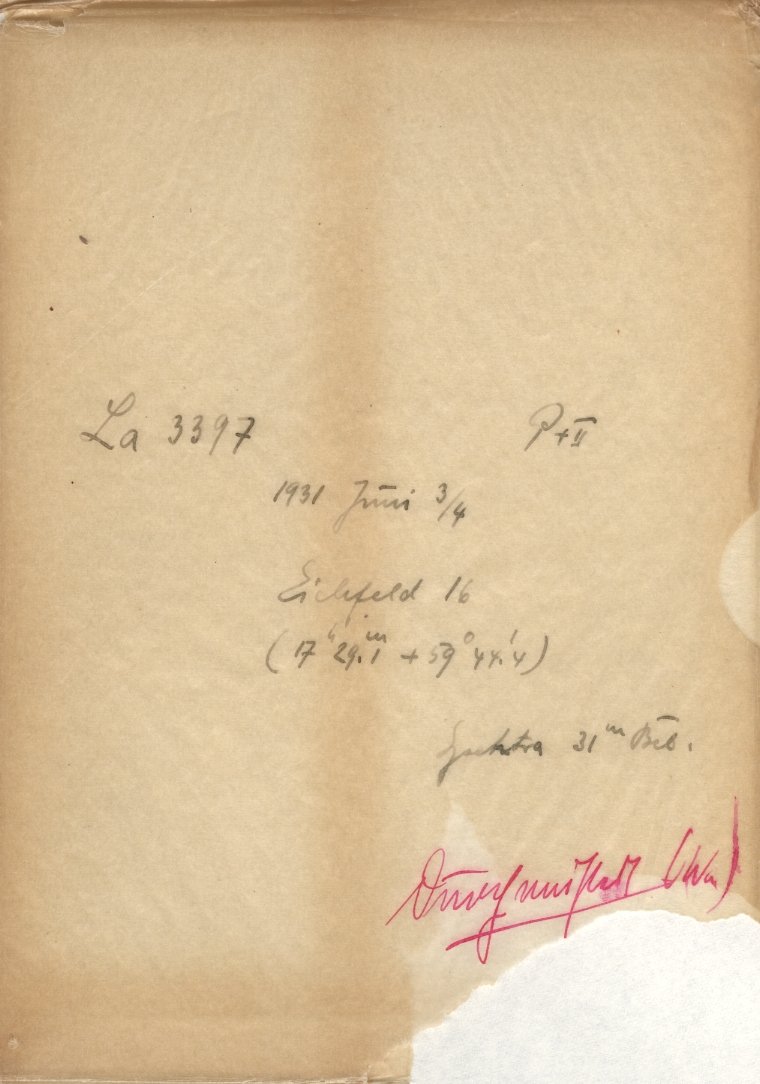 La 3397 P+II
1931 Juni 3/4
Eichfeld 16
(17ʰ 29.ᵐ1 + 59° 44.′4)
Spektra 31ᵐ Bel.
Durchmustert (Wa)